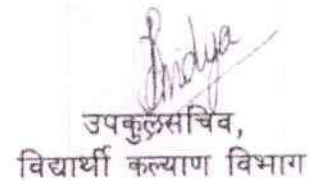 उपकुलसचिव,
विद्यार्थी कल्याण विभाग